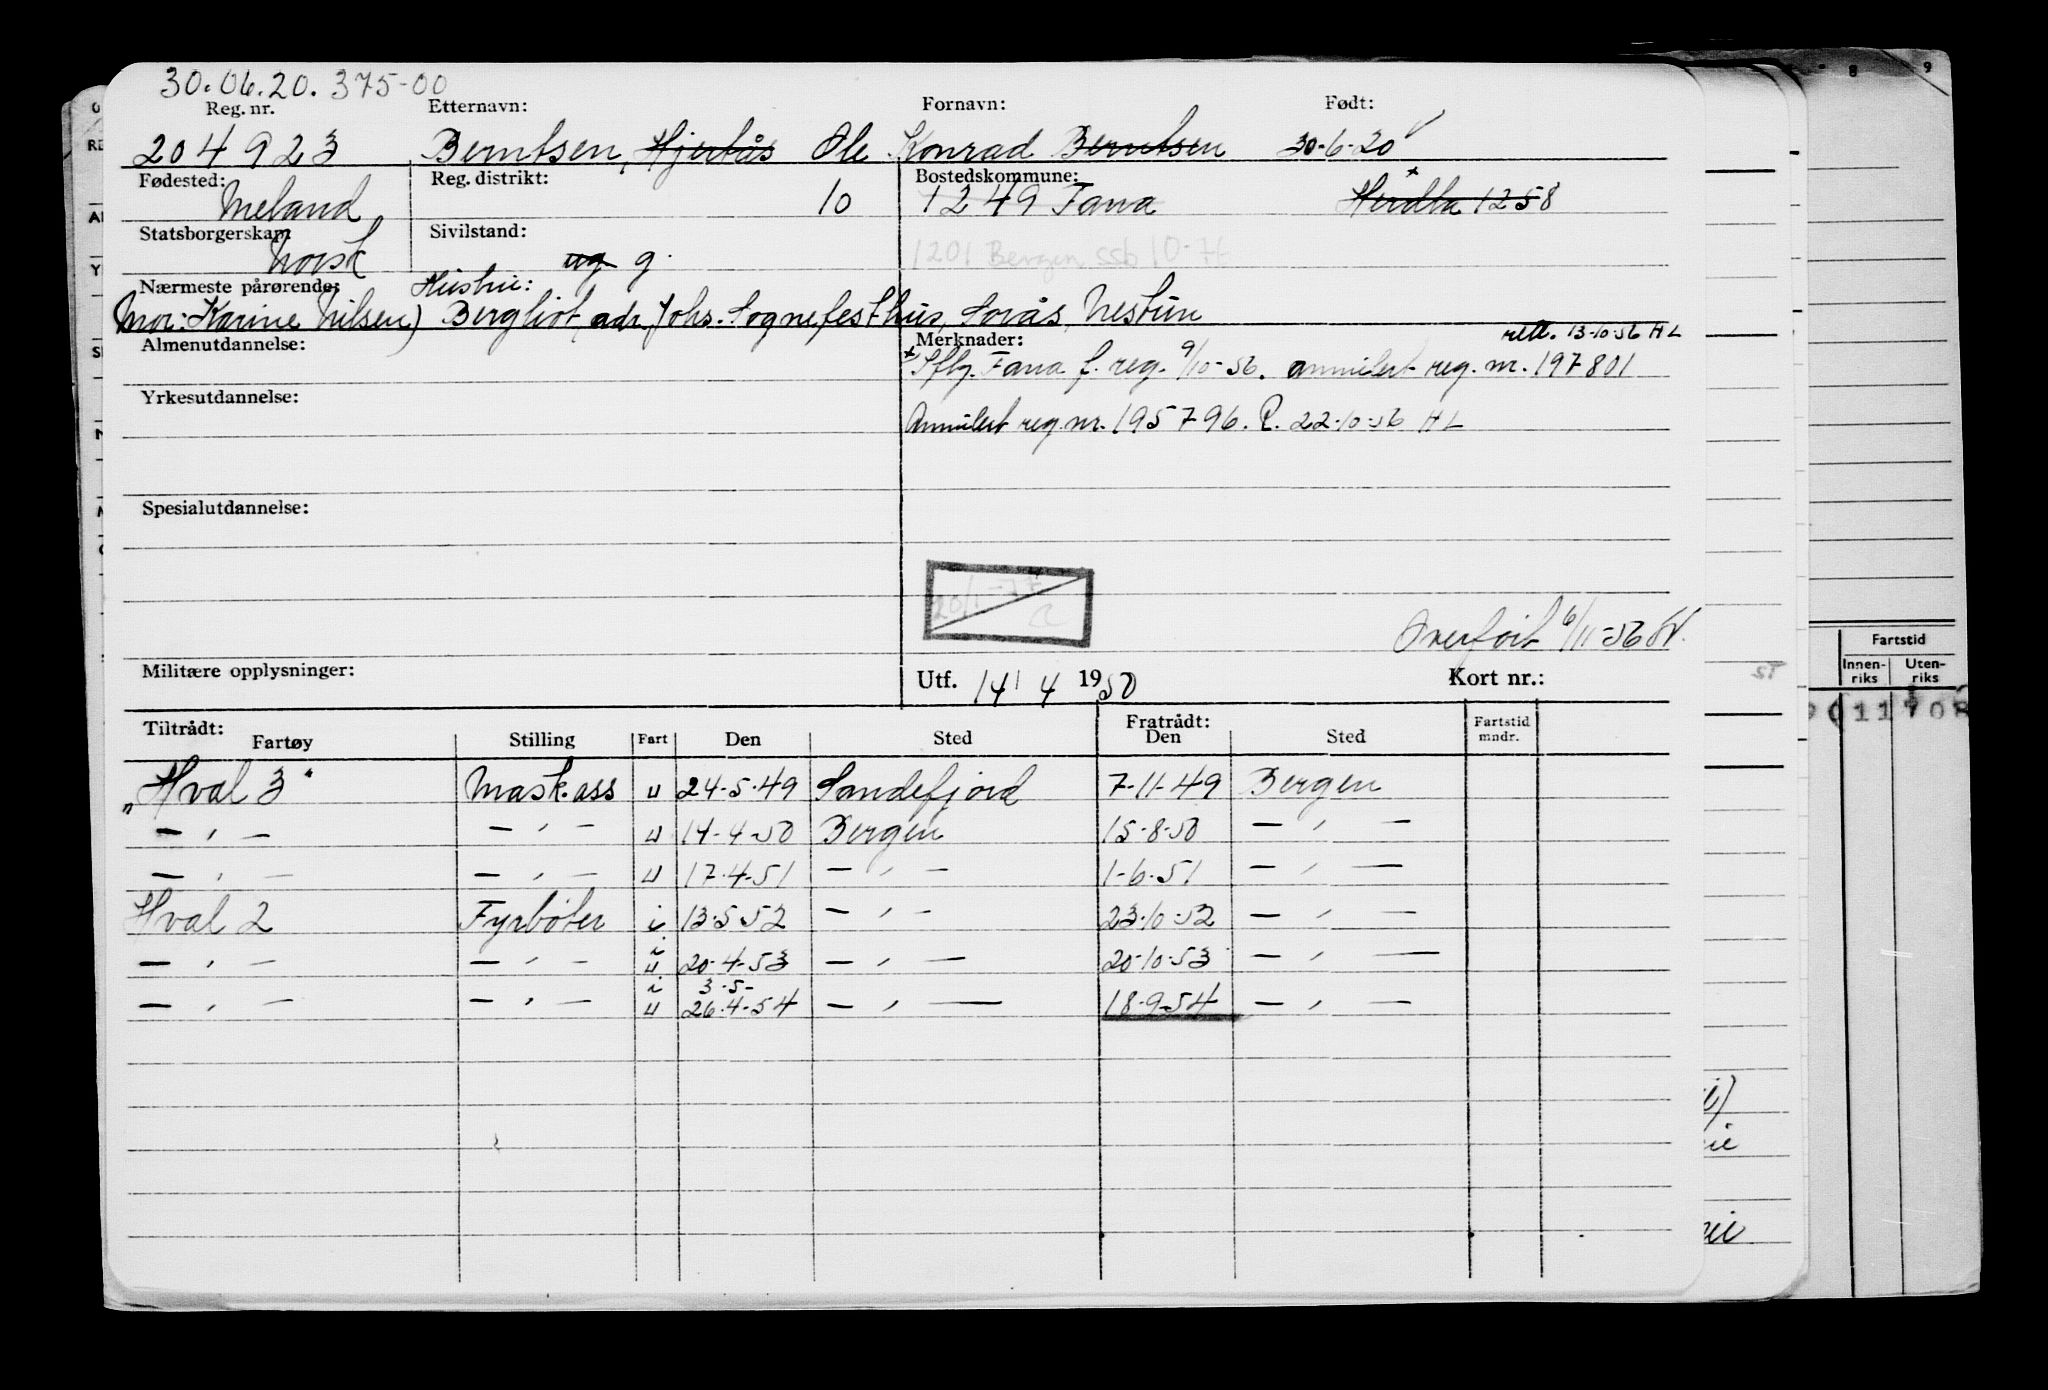 30.06.20. 375-00
Reg. nr. Etternavn: Fornavn: Født:
204923 Berntsen, Hjertås Ole Konrad Berntsen 30-6-20
Fødested: Reg. distrikt: Bostedskommune:
Meland 10 1249 Fana Herdla 1258
Statsborgerskap Sivilstand:
norsk ug g. 1201 Bergen ssb 10-
Nærmeste pårørende: Hustru:
Mor: Karine Nilsen) Bergliot, adr. Johs. Sognefesthus, Sørås, Nestun
Almenutdannelse: Merknader: rett. 13-10-56 HL
x Sfby. Fana f. reg. 9/10-56. annulert reg. nr. 197801
Yrkesutdannelse:
Annulert reg. nr. 195796. R. 22-10-56 HL
Spesialutdannelse:
20/1-77
Overført 6/11-56
Militære opplysninger: Utf. 14/4 1950 Kort nr.:
Tiltrådt: Fratrådt:
Fartøy Stilling Fart Den Sted Den Sted Fartstid mndr.
„Hval 3" Mask.ass u 24-5-49 Sandefjord 7-11-49 Bergen
— " — — " — u 14-4-50 Bergen 15-8-50 — " —
— " — — " — u 17-4-51 — " — 1-6-51 — " —
Hval 2 Fyrbøter i 13-5-52 — " — 23-10-52 — " —
i
— " — — " — u 20-4-53 — " — 20-10-53 — " —
i 3-5-
— " — — " — u 26-4-54 — " — 18-9-54 — " —
8 9
Fartstid
Innen-riks Uten-riks